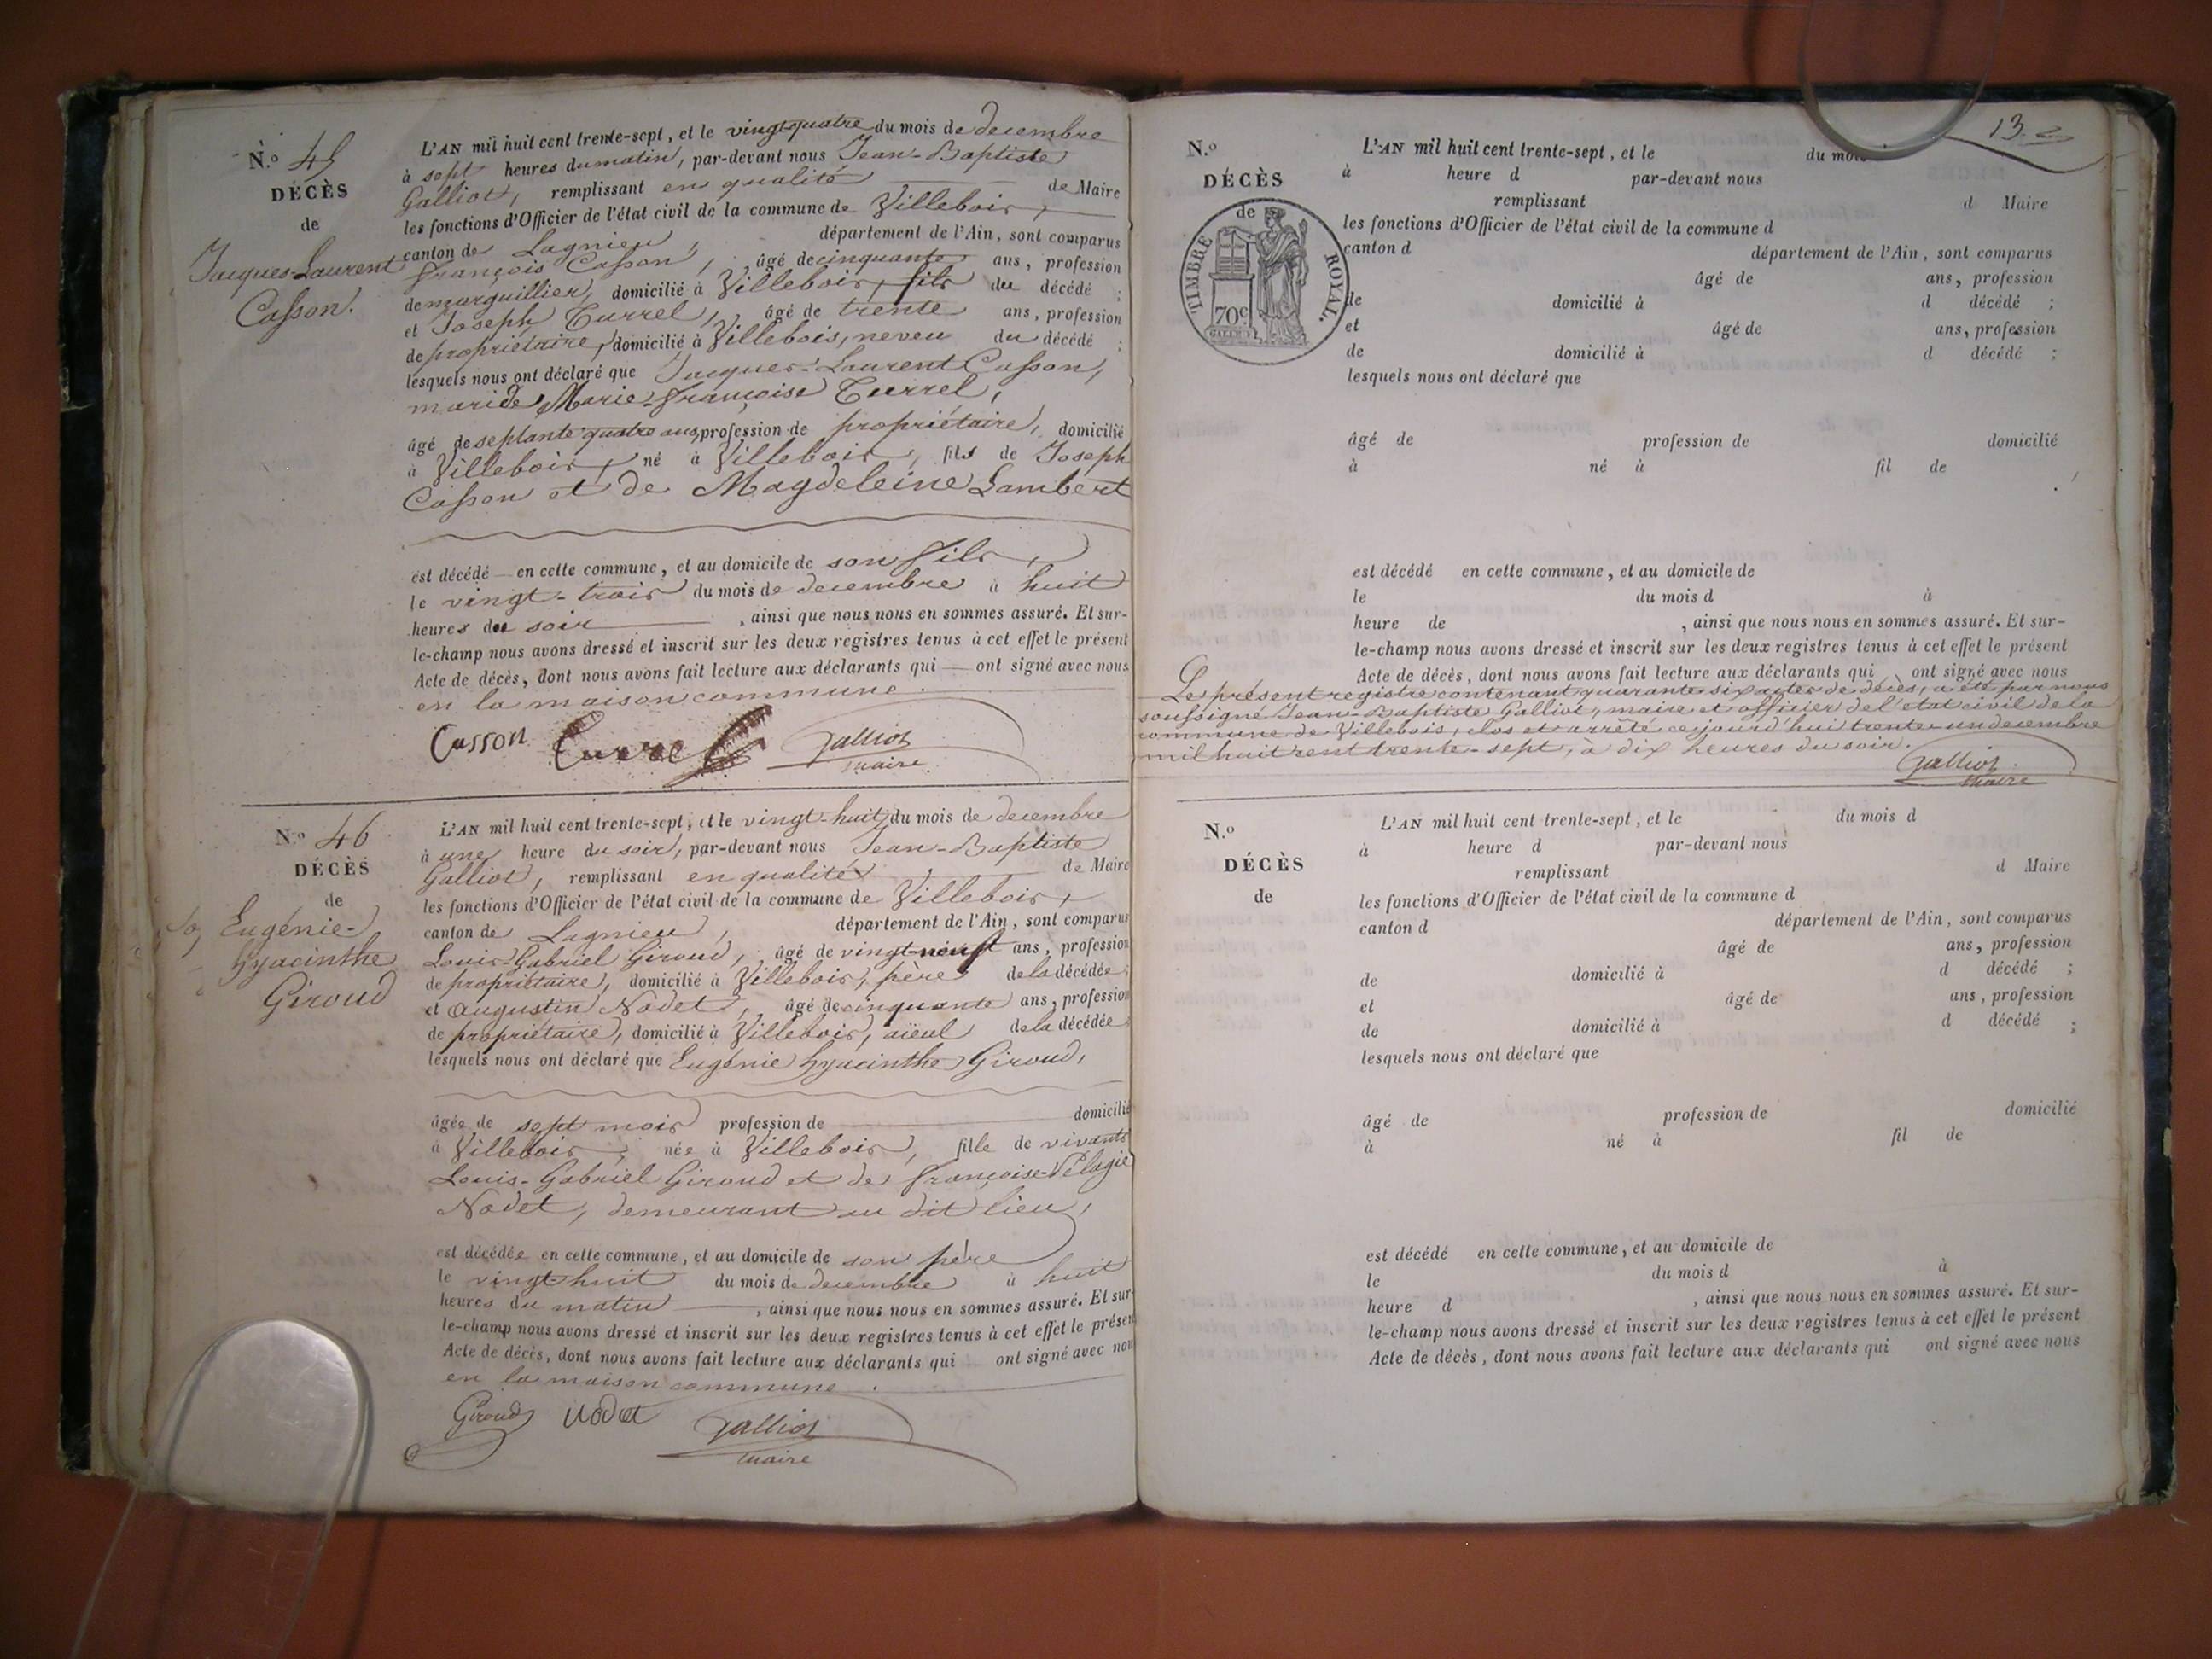 N.º 45
DÉCÈS
de
Jacques-Laurent
Casson.
L'AN mil huit cent trente-sept, et le vingt-quatre du mois de decembre
à sept heures du matin, par-devant nous Jean-Baptiste
Galliot, remplissant en qualité de Maire
les fonctions d'Officier de l'état civil de la commune de Villebois,
canton de Lagnieu, département de l'Ain, sont comparus
François Casson, âgé de cinquante ans, profession
de marguillier, domicilié à Villebois, fils du décédé ;
et Joseph Turrel, âgé de trente ans, profession
de propriétaire, domicilié à Villebois, neveu du décédé ;
lesquels nous ont déclaré que Jacques-Laurent Casson,
mari de Marie-Françoise Turrel,
âgé de septante quatre ans, profession de propriétaire, domicilié
à Villebois, né à Villebois, fils de Joseph
Casson et de Magdeleine Lambert
est décédé en cette commune, et au domicile de son fils,
le vingt-trois du mois de decembre à huit
heures du soir, ainsi que nous nous en sommes assuré. Et sur-
le-champ nous avons dressé et inscrit sur les deux registres tenus à cet effet le présent
Acte de décès, dont nous avons fait lecture aux déclarants qui ont signé avec nous
en la maison commune.
Casson Turrel Galliot
maire.
N.º 46
DÉCÈS
de
Eugénie-
hyacinthe
Giroud
L'AN mil huit cent trente-sept, et le vingt-huit du mois de decembre
à une heure du soir, par-devant nous Jean-Baptiste
Galliot, remplissant en qualité de Maire
les fonctions d'Officier de l'état civil de la commune de Villebois,
canton de Lagnieu, département de l'Ain, sont comparus
Louis-Gabriel Giroud, âgé de vingt-neuf ans, profession
de propriétaire, domicilié à Villebois, père de la décédée ;
et Augustin Nodet, âgé de cinquante ans, profession
de propriétaire, domicilié à Villebois, aïeul de la décédée ;
lesquels nous ont déclaré que Eugénie hyacinthe Giroud,
âgée de sept mois profession de domicilié
à Villebois, née à Villebois, fille de vivants
Louis-Gabriel Giroud et de françoise-Pélagie
Nodet, demeurant au dit lieu,
est décédée en cette commune, et au domicile de son père
le vingt huit du mois de decembre à huit
heures du matin, ainsi que nous nous en sommes assuré. Et sur-
le-champ nous avons dressé et inscrit sur les deux registres tenus à cet effet le présent
Acte de décès, dont nous avons fait lecture aux déclarants qui ont signé avec nous
en la maison commune.
Giroud Nodet Galliot
maire
13
N.º
DÉCÈS
de
TIMBRE ROYAL.
70c
L'AN mil huit cent trente-sept, et le du mois
à heure d par-devant nous
remplissant d Maire
les fonctions d'Officier de l'état civil de la commune d
canton d département de l'Ain, sont comparus
âgé de ans, profession
de domicilié à d décédé ;
et âgé de ans, profession
de domicilié à d décédé ;
lesquels nous ont déclaré que
âgé de profession de domicilié
à né à fil de
est décédé en cette commune, et au domicile de
le du mois d à
heure de , ainsi que nous nous en sommes assuré. Et sur-
le-champ nous avons dressé et inscrit sur les deux registres tenus à cet effet le présent
Acte de décès, dont nous avons fait lecture aux déclarants qui ont signé avec nous
Le présent registre contenant quarante-six actes de décès, a été par nous
soussigné Jean-Baptiste Galliot, maire et officier de l'état civil de la
commune de Villebois, clos et arrêté ce jourd'hui trente-un decembre
mil huit cent trente-sept, à dix heures du soir.
Galliot
maire
N.º
DÉCÈS
de
L'AN mil huit cent trente-sept, et le du mois d
à heure d par-devant nous
remplissant d Maire
les fonctions d'Officier de l'état civil de la commune d
canton d département de l'Ain, sont comparus
âgé de ans, profession
de domicilié à d décédé ;
et âgé de ans, profession
de domicilié à d décédé ;
lesquels nous ont déclaré que
âgé de profession de domicilié
à né à fil de
est décédé en cette commune, et au domicile de
le du mois d à
heure d , ainsi que nous nous en sommes assuré. Et sur-
le-champ nous avons dressé et inscrit sur les deux registres tenus à cet effet le présent
Acte de décès, dont nous avons fait lecture aux déclarants qui ont signé avec nous